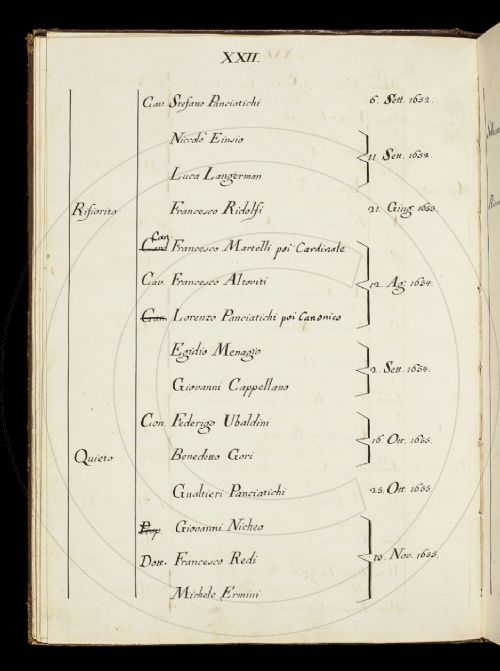 XXII.
Cav. Stefano Panciatichi 6. Sett. 1652.
Niccolò Einsio
11. Sett. 1652.
Luca Langerman
Rifiorito Francesco Ridolfi 21. Giug. 1653.
Can.
Francesco Martelli poi Cardinale
Cav. Francesco Altoviti 12. Ag. 1654.
Can. Lorenzo Panciatichi poi Canonico
Egidio Menagio
2. Sett. 1654.
Giovanni Cappellano
Con. Federigo Ubaldini
16. Ott. 1655.
Quieto Benedetto Gori
Gualtieri Panciatichi 25. Ott. 1655.
Prop. Giovanni Nicheo
Dott. Francesco Redi Nov. 1655.
Michele Ermini